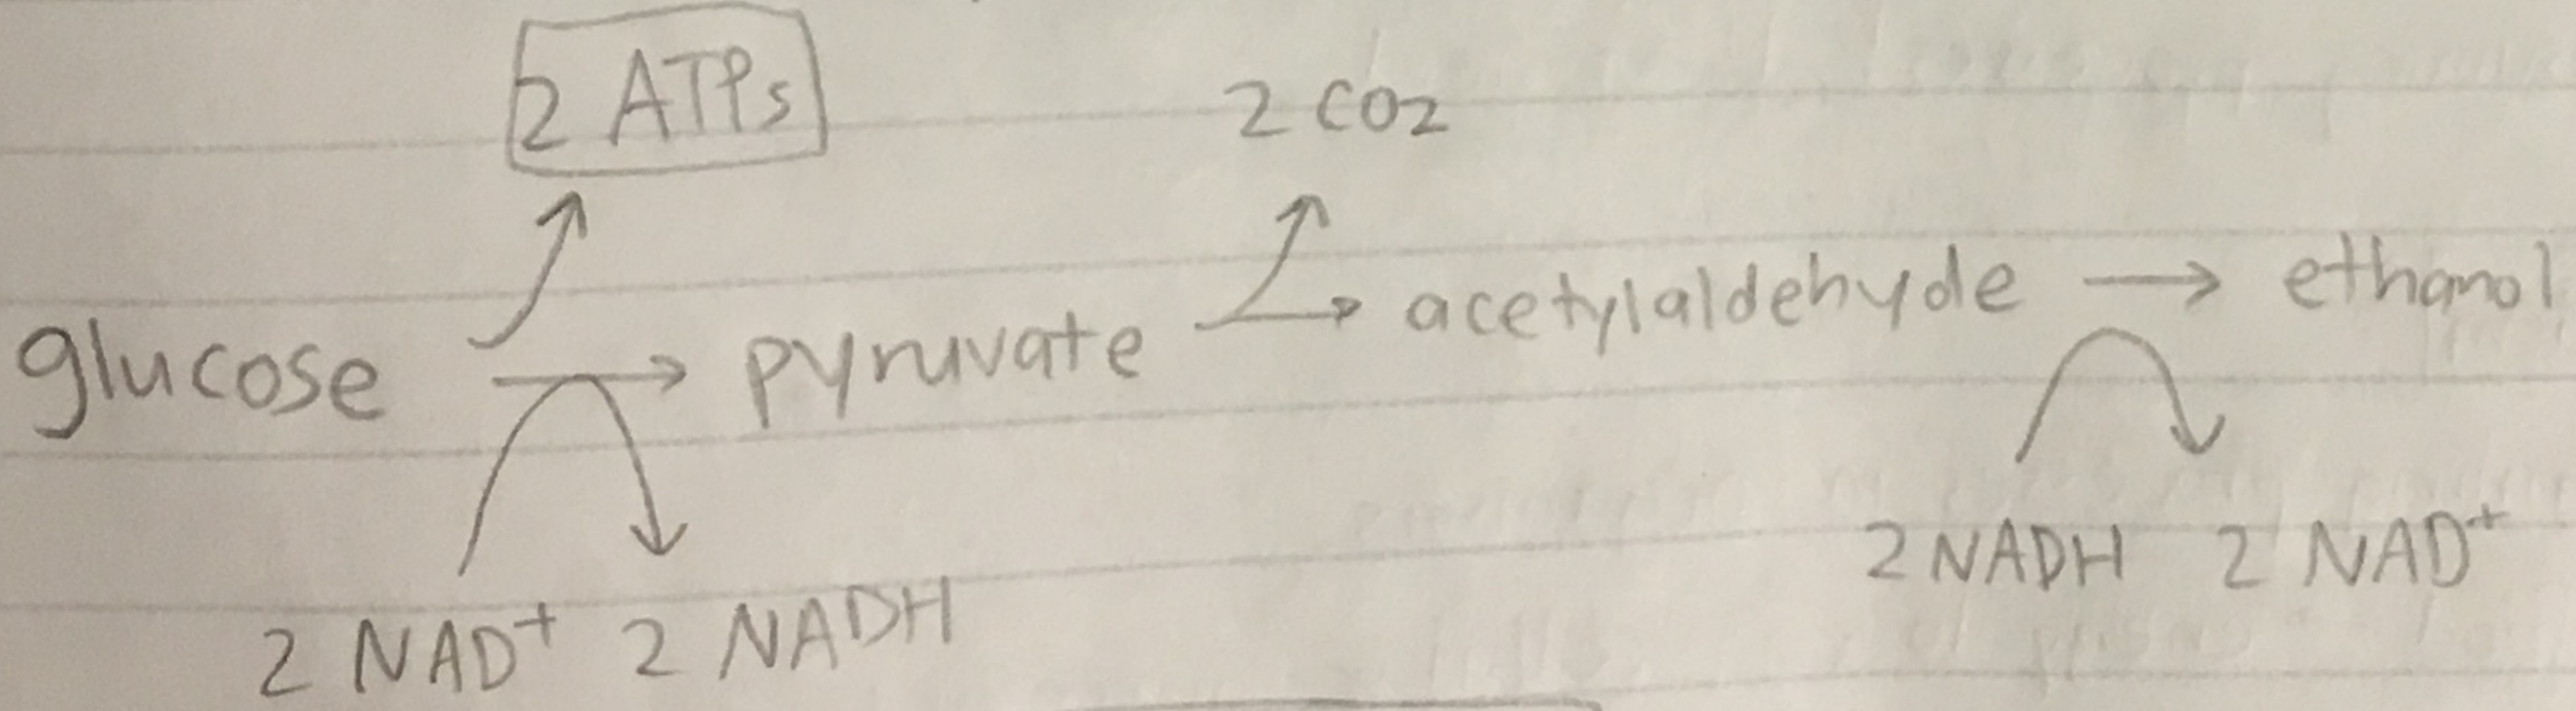 2 ATPs
2 CO2
glucose → pyruvate → acetylaldehyde → ethanol
2 NAD+ 2 NADH
2 NADH 2 NAD+